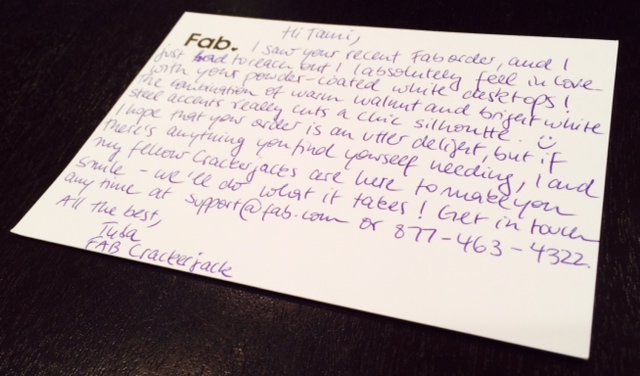 Hi Tami,
Fab. I saw your recent Fab order, and I
just had to reach out! I absolutely feel in love
with your powder-coated white desktops!
The combination of warm walnut and bright white
steel accents really cuts a chic silhoutte. :)
I hope that your order is an utter delight, but if
there's anything you find yourself needing, I and
my fellow Crackerjacks are here to make you
smile - we'll do what it takes! Get in touch
any time at support@fab.com or 877-463-4322.
All the best,
FAB Crackerjack